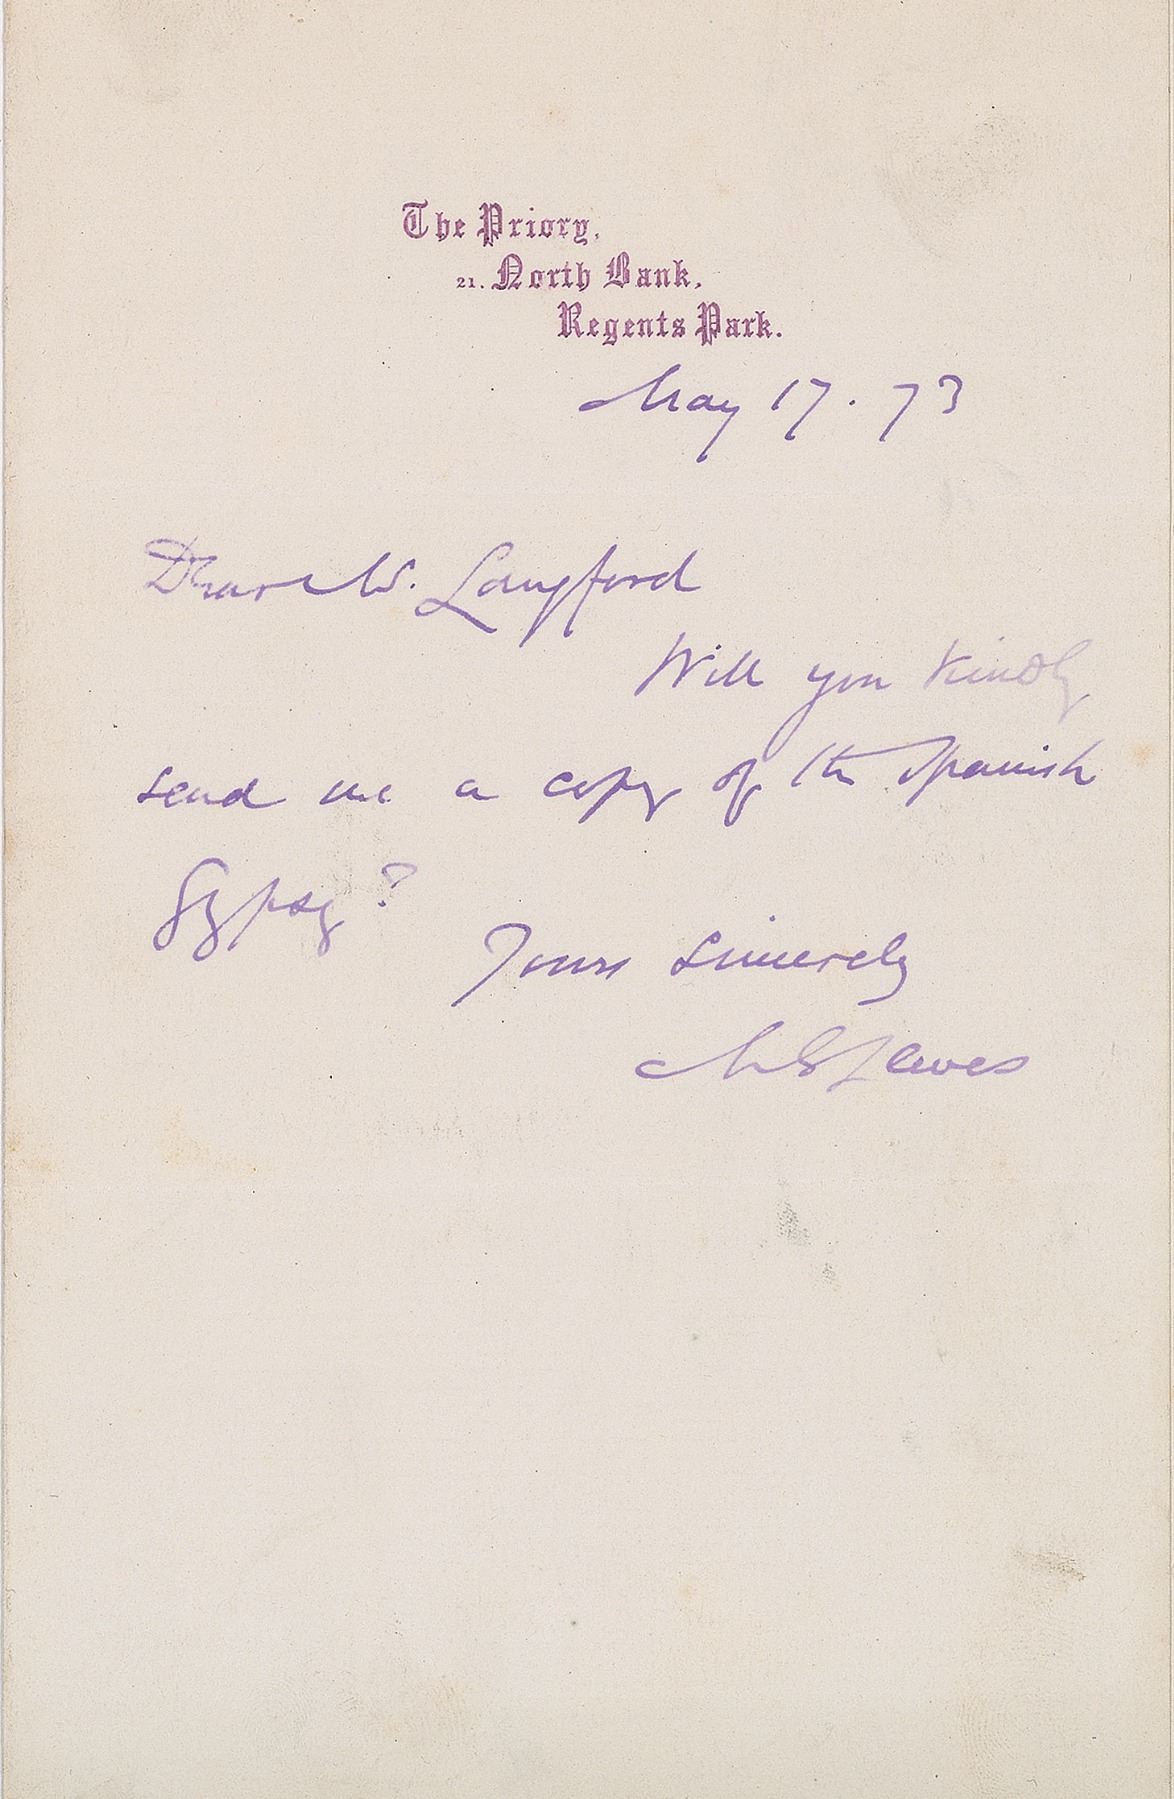 The Priory,
21. North Bank,
Regents Park.
May 17. 73
Dear Mr. Langford
Will you kindly
send me a copy of the Spanish
Gypsy?
Yours sincerely
Lewes